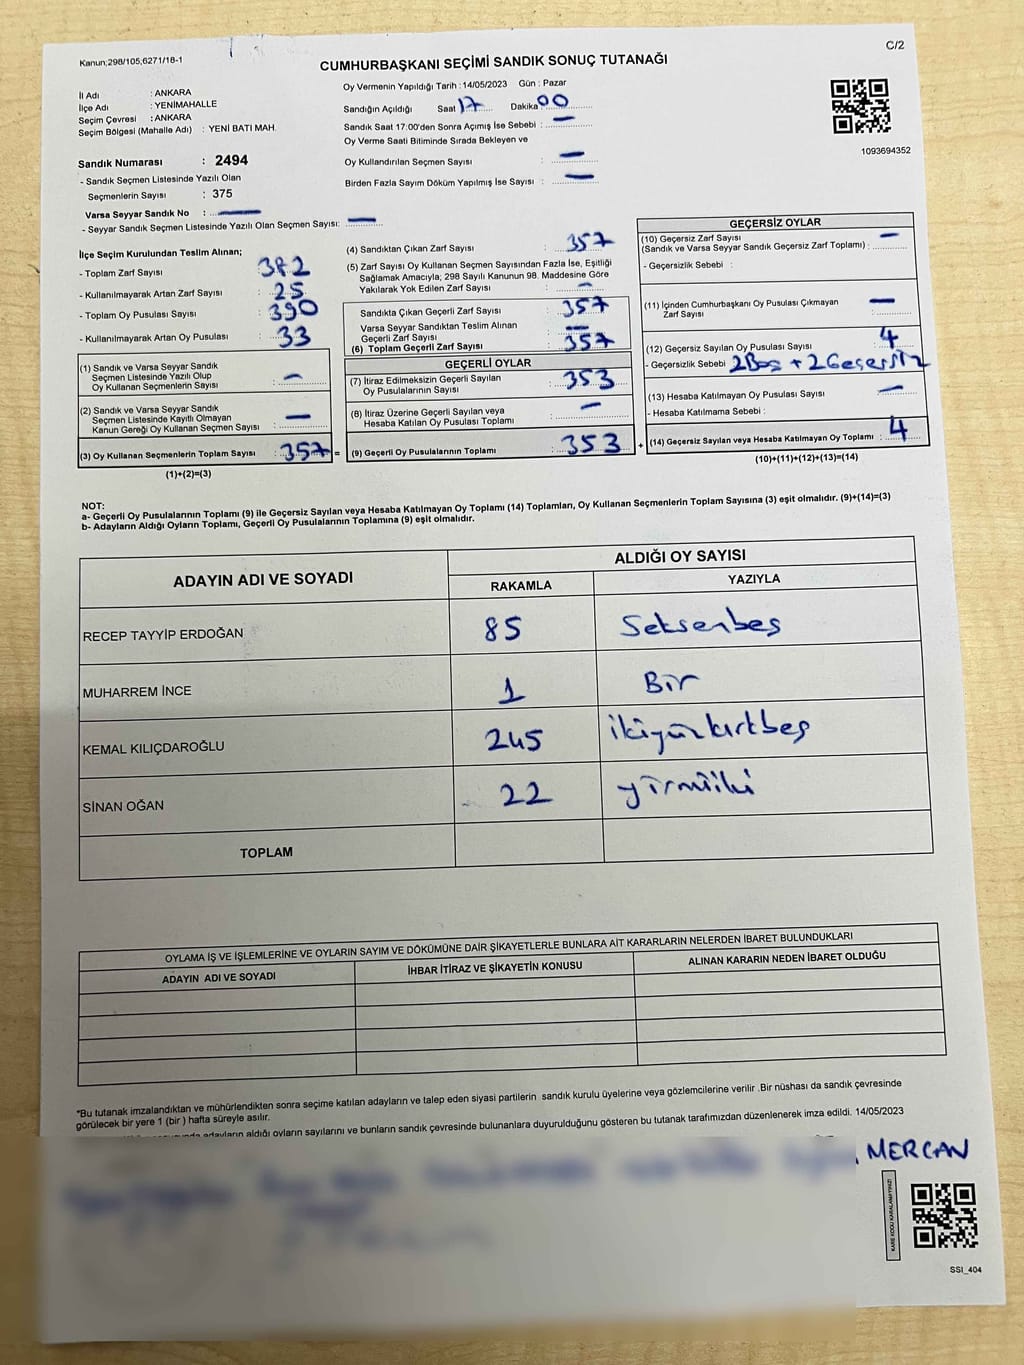 Kanun;298/105,6271/18-1
C/2
CUMHURBAŞKANI SEÇİMİ SANDIK SONUÇ TUTANAĞI
İl Adı : ANKARA
İlçe Adı : YENİMAHALLE
Seçim Çevresi : ANKARA
Seçim Bölgesi (Mahalle Adı) : YENİ BATI MAH.
Sandık Numarası : 2494
- Sandık Seçmen Listesinde Yazılı Olan
Seçmenlerin Sayısı : 375
Varsa Seyyar Sandık No : —
- Seyyar Sandık Seçmen Listesinde Yazılı Olan Seçmen Sayısı: —
Oy Vermenin Yapıldığı Tarih : 14/05/2023 Gün : Pazar
Sandığın Açıldığı Saat 17 Dakika 00
Sandık Saat 17:00'den Sonra Açımış İse Sebebi : —
Oy Verme Saati Bitiminde Sırada Bekleyen ve
Oy Kullandırılan Seçmen Sayısı : —
Birden Fazla Sayım Döküm Yapılmış İse Sayısı : —
1093694352
İlçe Seçim Kurulundan Teslim Alınan;
- Toplam Zarf Sayısı : 382
- Kullanılmayarak Artan Zarf Sayısı : 25
- Toplam Oy Pusulası Sayısı : 390
- Kullanılmayarak Artan Oy Pusulası : 33
(1) Sandık ve Varsa Seyyar Sandık
Seçmen Listesinde Yazılı Olup
Oy Kullanan Seçmenlerin Sayısı : —
(2) Sandık ve Varsa Seyyar Sandık
Seçmen Listesinde Kayıtlı Olmayan
Kanun Gereği Oy Kullanan Seçmen Sayısı : —
(3) Oy Kullanan Seçmenlerin Toplam Sayısı : 357 =
(1)+(2)=(3)
(4) Sandıktan Çıkan Zarf Sayısı : 357
(5) Zarf Sayısı Oy Kullanan Seçmen Sayısından Fazla İse, Eşitliği
Sağlamak Amacıyla; 298 Sayılı Kanunun 98. Maddesine Göre
Yakılarak Yok Edilen Zarf Sayısı : —
Sandıkta Çıkan Geçerli Zarf Sayısı : 357
Varsa Seyyar Sandıktan Teslim Alınan
Geçerli Zarf Sayısı : —
(6) Toplam Geçerli Zarf Sayısı : 357
GEÇERLİ OYLAR
(7) İtiraz Edilmeksizin Geçerli Sayılan
Oy Pusulalarının Sayısı : 353
(8) İtiraz Üzerine Geçerli Sayılan veya
Hesaba Katılan Oy Pusulası Toplamı : —
(9) Geçerli Oy Pusulalarının Toplamı : 353 +
GEÇERSİZ OYLAR
(10) Geçersiz Zarf Sayısı
(Sandık ve Varsa Seyyar Sandık Geçersiz Zarf Toplamı) : —
- Geçersizlik Sebebi :
(11) İçinden Cumhurbaşkanı Oy Pusulası Çıkmayan
Zarf Sayısı : —
(12) Geçersiz Sayılan Oy Pusulası Sayısı : 4
- Geçersizlik Sebebi 2 Boş + 2 Geçersiz
(13) Hesaba Katılmayan Oy Pusulası Sayısı : —
- Hesaba Katılmama Sebebi :
(14) Geçersiz Sayılan veya Hesaba Katılmayan Oy Toplamı : 4
(10)+(11)+(12)+(13)=(14)
NOT:
a- Geçerli Oy Pusulalarının Toplamı (9) ile Geçersiz Sayılan veya Hesaba Katılmayan Oy Toplamı (14) Toplamları, Oy Kullanan Seçmenlerin Toplam Sayısına (3) eşit olmalıdır. (9)+(14)=(3)
b- Adayların Aldığı Oyların Toplamı, Geçerli Oy Pusulalarının Toplamına (9) eşit olmalıdır.
ADAYIN ADI VE SOYADI
ALDIĞI OY SAYISI
RAKAMLA YAZIYLA
RECEP TAYYİP ERDOĞAN 85 Seksenbeş
MUHARREM İNCE 1 Bir
KEMAL KILIÇDAROĞLU 245 ikiyüzkırkbeş
SİNAN OĞAN 22 yirmiiki
TOPLAM
OYLAMA İŞ VE İŞLEMLERİNE VE OYLARIN SAYIM VE DÖKÜMÜNE DAİR ŞİKAYETLERLE BUNLARA AİT KARARLARIN NELERDEN İBARET BULUNDUKLARI
ADAYIN ADI VE SOYADI İHBAR İTİRAZ VE ŞİKAYETİN KONUSU ALINAN KARARIN NEDEN İBARET OLDUĞU
*Bu tutanak imzalandıktan ve mühürlendikten sonra seçime katılan adayların ve talep eden siyasi partilerin sandık kurulu üyelerine veya gözlemcilerine verilir .Bir nüshası da sandık çevresinde
görülecek bir yere 1 (bir ) hafta süreyle asılır.
adayların aldığı oyların sayılarını ve bunların sandık çevresinde bulunanlara duyurulduğunu gösteren bu tutanak tarafımızdan düzenlenerek imza edildi. 14/05/2023
MERCAN
KARE KODU KARALAMAYINIZ!
SSI_404